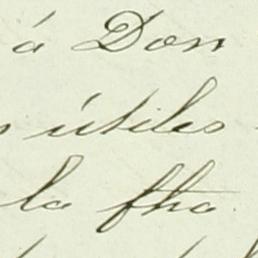 á Don
útiles
la fha